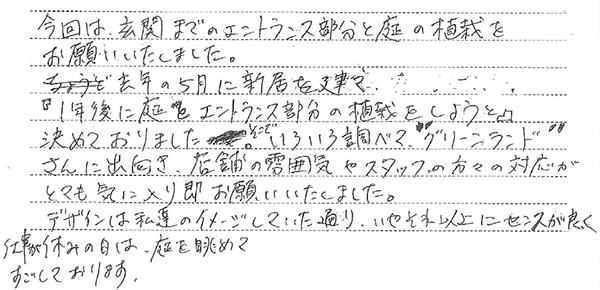 今回は、玄関までのエントランス部分と庭の植栽を
お願いいたしました。
去年の5月に新居を建て、
『1年後に庭とエントランス部分の植栽をしようと』
決めておりました。そこでいろいろ調べて、"グリーンランド"
さんに出向き、店舗の雰囲気やスタッフの方々の対応が
とても気に入り即お願いいたしました。
デザインは私達のイメージしていた通り、いやそれ以上にセンスが良く
仕事が休みの日は、庭を眺めて
すごしております。